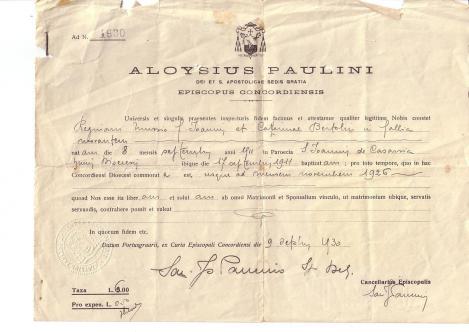 Ad N. 1930
ALOYSIUS PAULINI
DEI ET S. APOSTOLICAE SEDIS GRATIA
EPISCOPUS CONCORDIENSIS
Universis et singulis praesentes inspecturis fidem facimus et attestamur qualiter legitime Nobis constet
f. Joannis et Catherinae Bertolin a Gallia
nat am die 8 mensis septembris 1911 in Paroecia S. Joannis de Casarsa
ibique die 17 septembris 1911 baptizat am; pro toto tempore, quo in hac
Concordiensi Dioecesi commorat a est, usque ad mensem novembrem 1926
quoad Nos esse ita liber am et solut am ab omni Matrimonii et Sponsalium vinculo, ut matrimonium ubique, servatis
servandis, contrahere possit et valeat
In quorum fidem etc.
Datum Portusgruarii, ex Curia Episcopali Concordiensi die 9 1930
Cancellarius Episcopalis
Taxa L. 6.00
Pro expen. L. 0.50